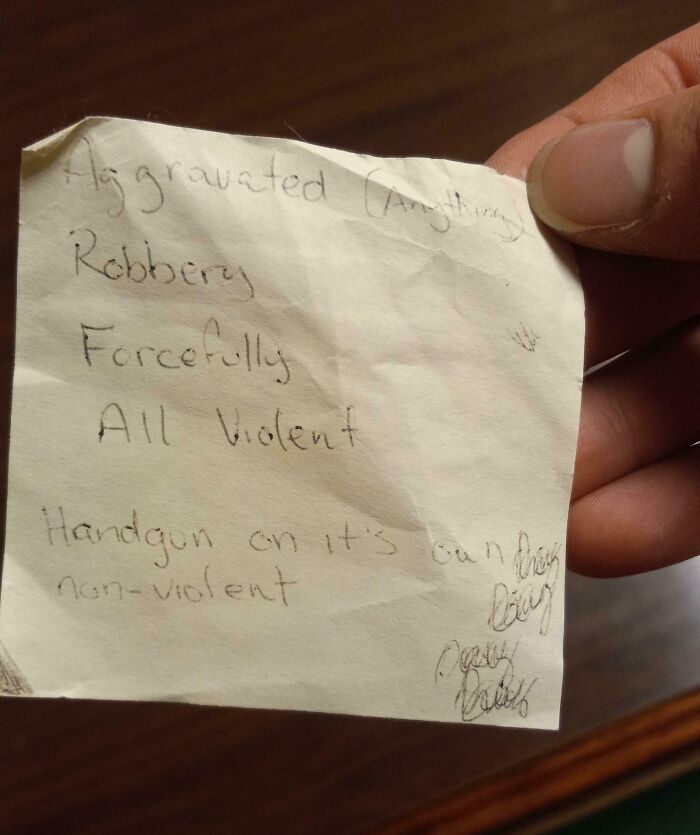 Aggravated (Anything)
Robbery
Forcefully
All Violent
Handgun on it's own
non-violent